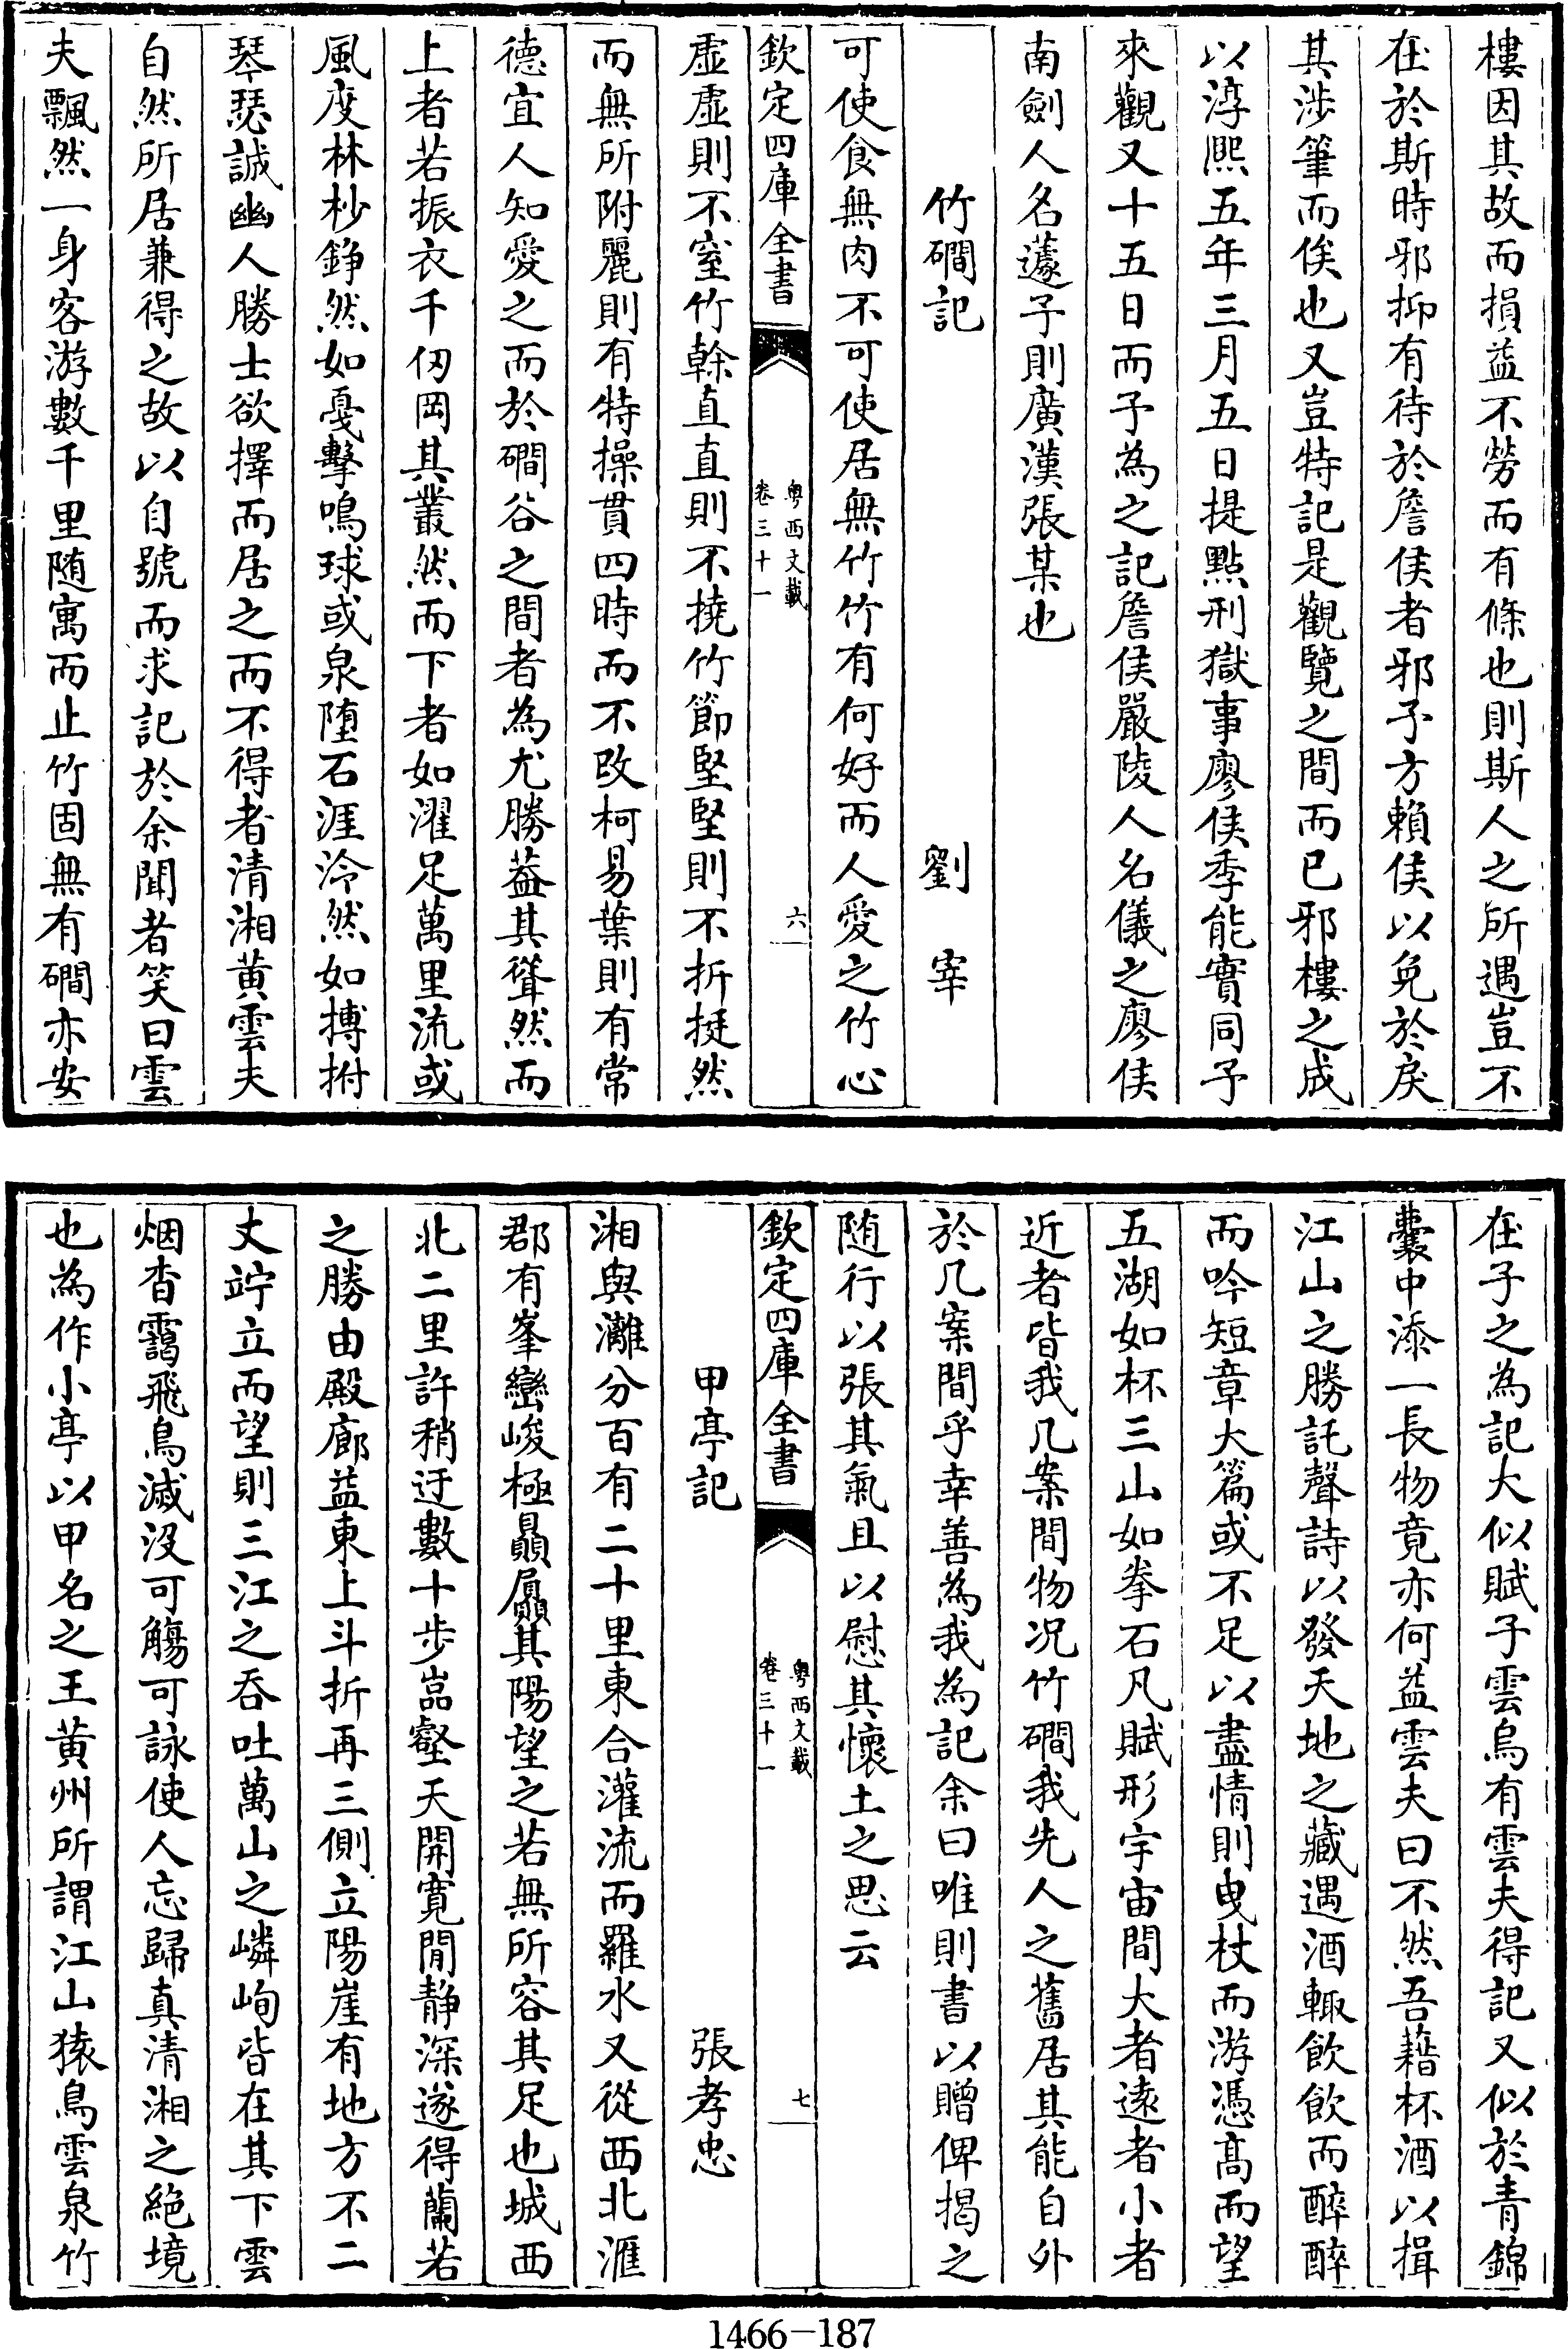 樓因其故而損益不勞而有條也則斯人之所遇豈不
在於斯時邪抑有待於詹侯者邪予方賴侯以免於戾
其涉筆而俟也又豈特記是觀覽之間而已邪樓之成
以淳熈五年三月五日提點刑獄事廖侯季能實同予
來觀又十五日而予為之記詹侯嚴陵人名儀之廖侯
南劍人名蘧予則廣漢張某也
竹磵記 劉宰
可使食無肉不可使居無竹竹有何好而人愛之竹心
欽定四庫全書
粵西文載
卷三十一
六
虛虛則不窒竹幹直直則不撓竹節堅堅則不折挺然
而無所附麗則有特操貫四時而不改柯易葉則有常
德宜人知愛之而於磵谷之間者為尤勝葢其聳然而
上者若振衣千仞岡其叢然而下者如濯足萬里流或
風度林杪錚然如戛擊鳴球或泉墮石涯泠然如搏拊
琴瑟誠幽人勝士欲擇而居之而不得者清湘黄雲夫
自然所居兼得之故以自號而求記於余聞者笑曰雲
夫飄然一身客游數千里随寓而止竹固無有磵亦安
在子之為記大似賦子雲烏有雲夫得記又似於青錦
囊中添一長物竟亦何益雲夫曰不然吾藉杯酒以揖
江山之勝託聲詩以發天地之藏遇酒輙飲飲而醉醉
而吟短章大篇或不足以盡情則曳杖而游憑髙而望
五湖如杯三山如拳石凡賦形宇宙間大者逺者小者
近者皆我几案間物况竹磵我先人之舊居其能自外
於几案間乎幸善為我為記余曰唯則書以贈俾揭之
随行以張其氣且以慰其懷土之思云
欽定四庫全書
粵西文載
卷三十一
七
甲亭記 張孝忠
湘與灕分百有二十里東合灌流而羅水又從西北滙
郡有峯巒峻極贔屭其陽望之若無所容其足也城西
北二里許稍迂數十步嵓壑天開寛閒静深遂得蘭若
之勝由殿廊益東上斗折再三側立陽崖有地方不二
丈竚立而望則三江之吞吐萬山之嶙峋皆在其下雲
烟杳靄飛鳥滅没可觴可詠使人忘歸真清湘之絶境
也為作小亭以甲名之王黄州所謂江山猿鳥雲泉竹
1466-187